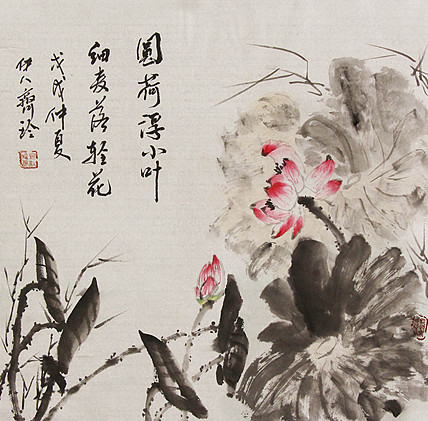 圆荷浮小叶
细麦落轻花
戊戌仲夏
伊人齋玲